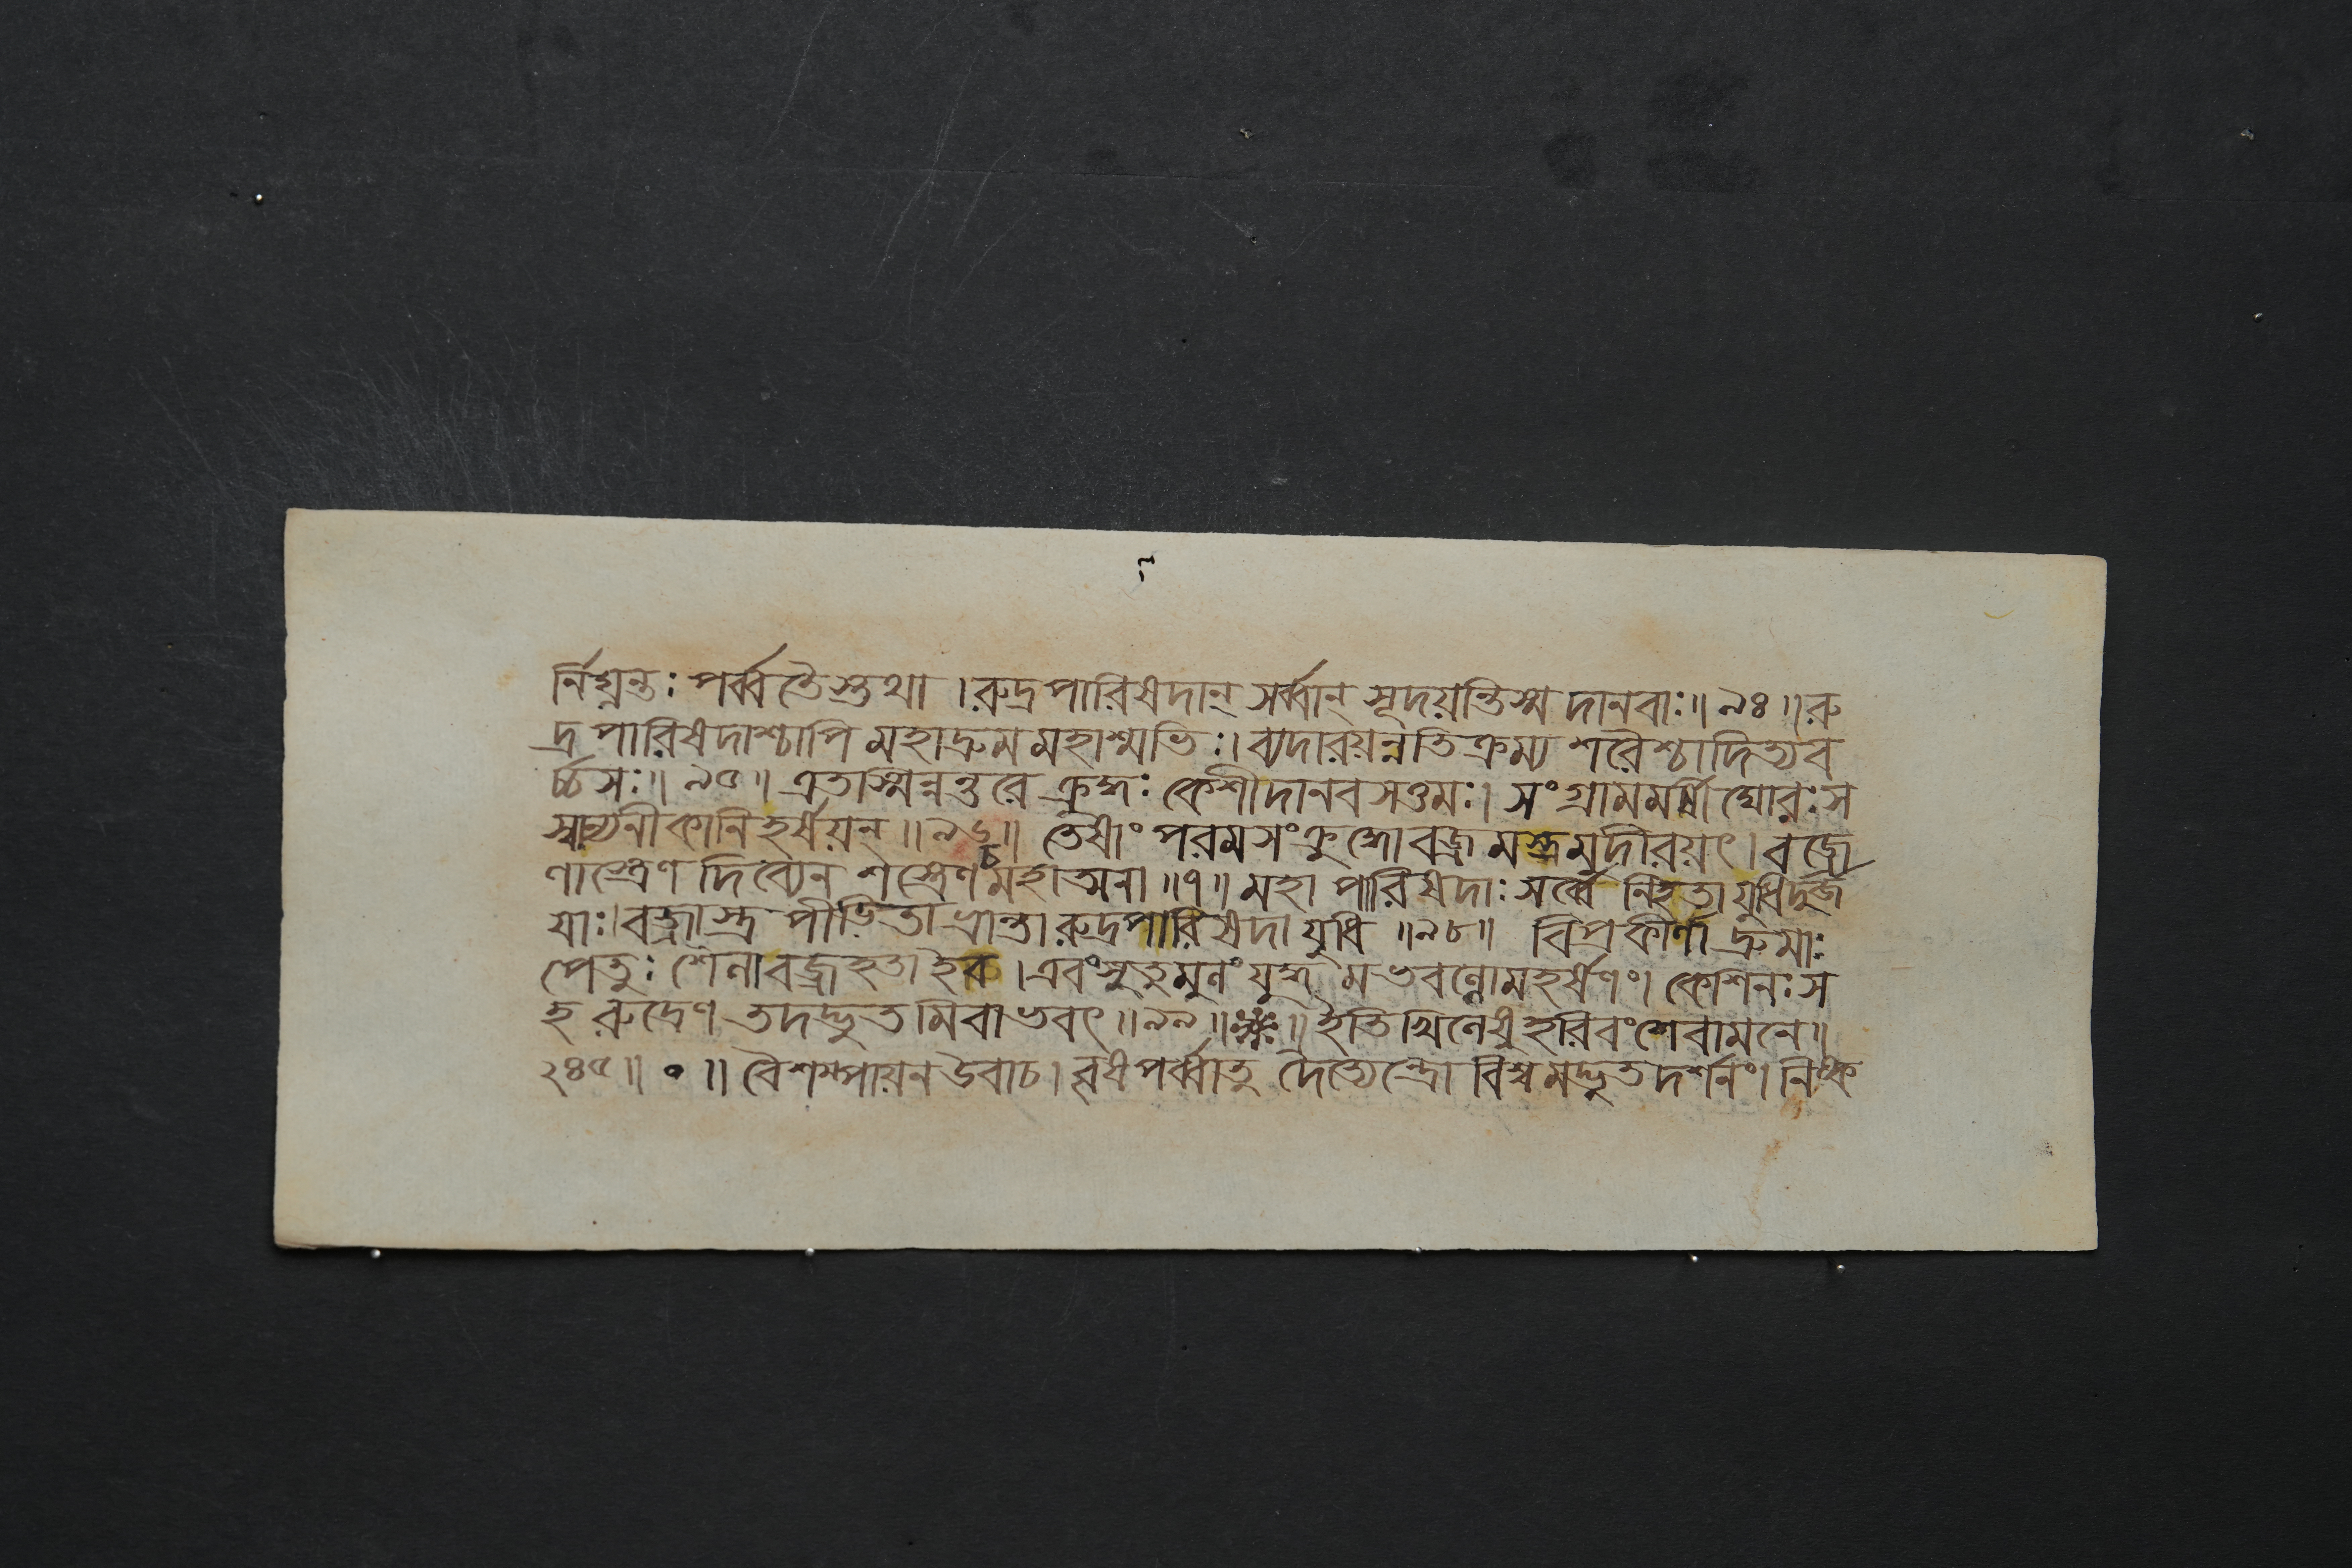 র্নিঘ্নন্তঃ পর্ব্বতৈস্তথা । রুদ্রপারিষদান্ সর্ব্বান্ সূদয়ন্তিস্ম দানবাঃ॥ ৯৪ ॥ রু
দ্রপারিষদাশ্চাপি মহাদ্রুমমহাশ্মভিঃ। ব্যদারয়ন্নতিক্রম্য শরৈশ্চাদিত্যব
র্চ্চসঃ॥ ৯৫ ॥ এতস্মিন্নন্তরে ক্রুদ্ধঃ কেশীদানবসত্তমঃ। সংগ্রামমর্ষী ঘোরঃ স
স্বান্যনীকানি হর্ষয়ন্ ॥ ৯৬ ॥ তেষাং পরমসংক্রুদ্ধো বজ্রমস্ত্রমুদীরয়ৎ। বজ্রে
ণাস্ত্রেণ দিব্যেন শস্ত্রেণ চ মহাত্মনা ॥ ৭ ॥ মহা পারিষদাঃ সর্ব্বে নিহতা যুধিদুর্জ
য়াঃ। বজ্রাস্ত্র পীডিতা ভ্রান্তা রুদ্রপারিষদা যুধি ॥ ৯৮ ॥ বিপ্রকীর্ণা দ্রুমাঃ
পেতুঃ শৈলা বজ্রহতা ইব । এবং সুতুমুলং যুদ্ধমভবল্লোমহর্ষণং। কেশিনঃ স
হ রুদ্রেণ তদদ্ভুতমিবাভবৎ ॥ ৯৯ ॥ ॥ ইতি খিলেষু হরিবংশে বামনে ॥
২৪৫ ॥ ० ॥ বৈশম্পায়ন উবাচ। বৃষপর্ব্বাতু দৈত্যেন্দ্রো বিশ্বমদ্ভুতদর্শনং। নিষ্ক